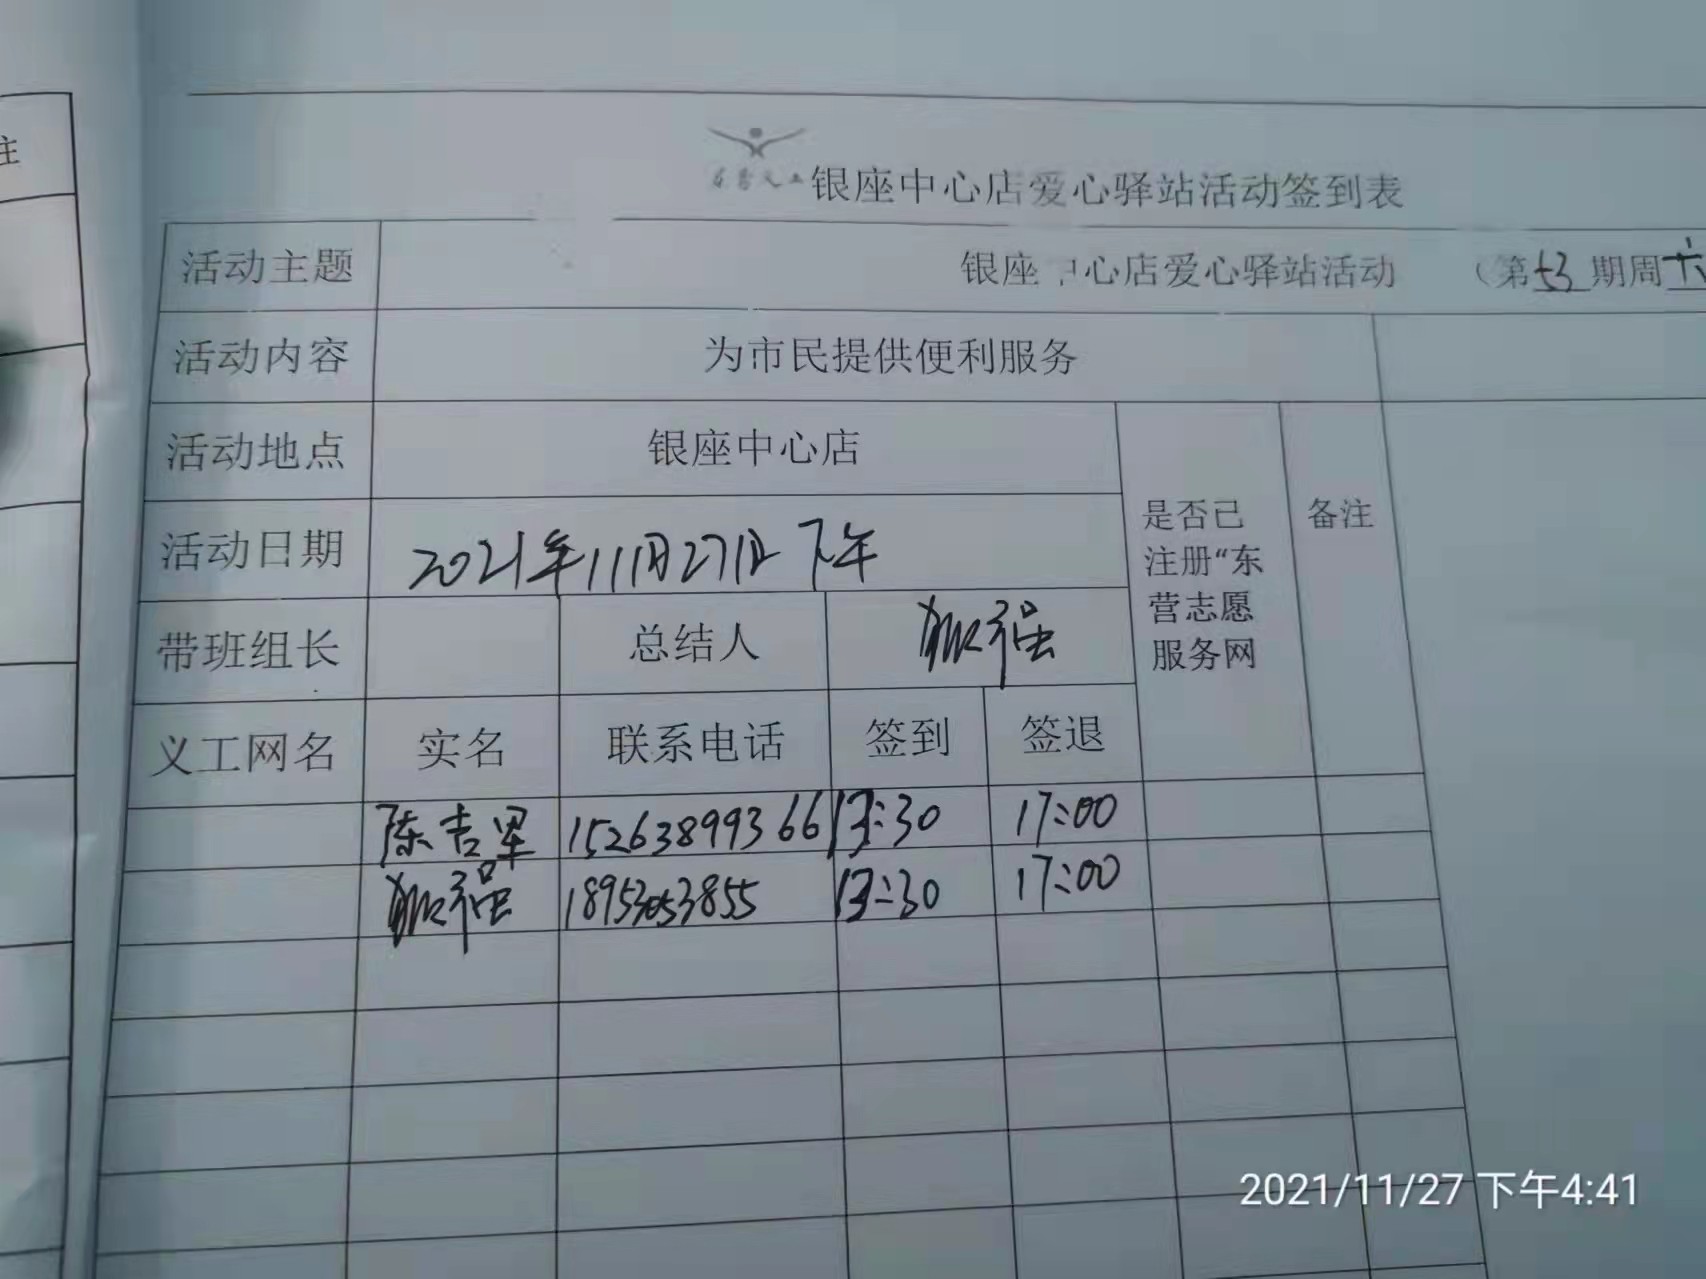 注
东营义工 银座中心店爱心驿站活动签到表
活动主题 银座中心店爱心驿站活动 (第 期周六
活动内容 为市民提供便利服务
活动地点 银座中心店
是否已注册“东营志愿服务网 备注
活动日期 2021年11月27日下午
带班组长 总结人
义工网名 实名 联系电话 签到 签退
陈吉军 15263899366 13:30 17:00
18953053855 13:30 17:00
2021/11/27 下午4:41